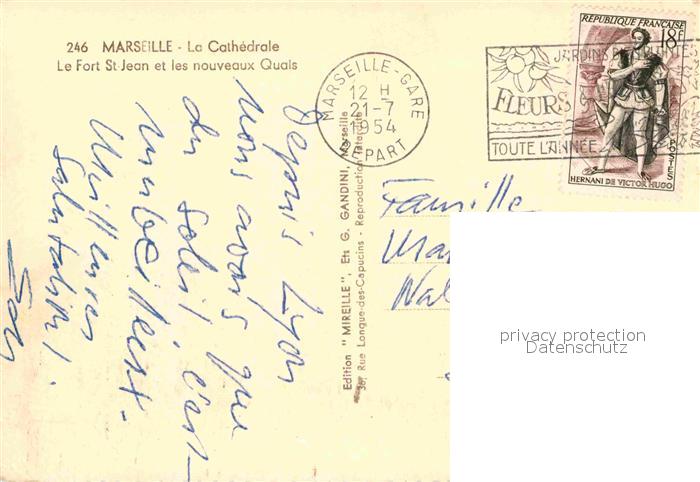 246 MARSEILLE - La Cathédrale
Le Fort St-Jean et les nouveaux Quais
MARSEILLE-GARE
12 H
21-7
1954
DÉPART
JARDINS
FLEURS
TOUTE L'ANNÉE
REPUBLIQUE FRANÇAISE
18F
POSTES
HERNANI DE VICTOR HUGO
Depuis Lyon
nous avons que
du soleil c'est
Meilleures
Salutations.
Edition "MIREILLE", Ets G. GANDINI, Marseille
38, Rue Longue-des-Capucins - Reproduction Interdite
Famille
privacy protection
Datenschutz